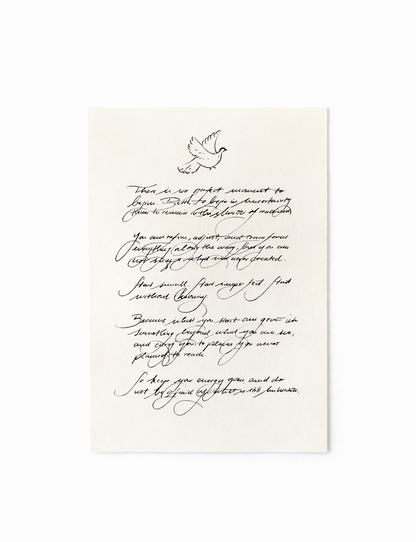 There is no perfect moment to
begin. Better to begin in uncertainty
than to remain in the illusion of readiness
You can refine, adjust, and transform
everything along the way, but you can
not shape what was never created.
Start small Start imperfect Start
without
Because what you start can grow into
something beyond what you can see,
and carry you to places you never
planned to reach.
So keep your energy open and do
not be afraid of what is still